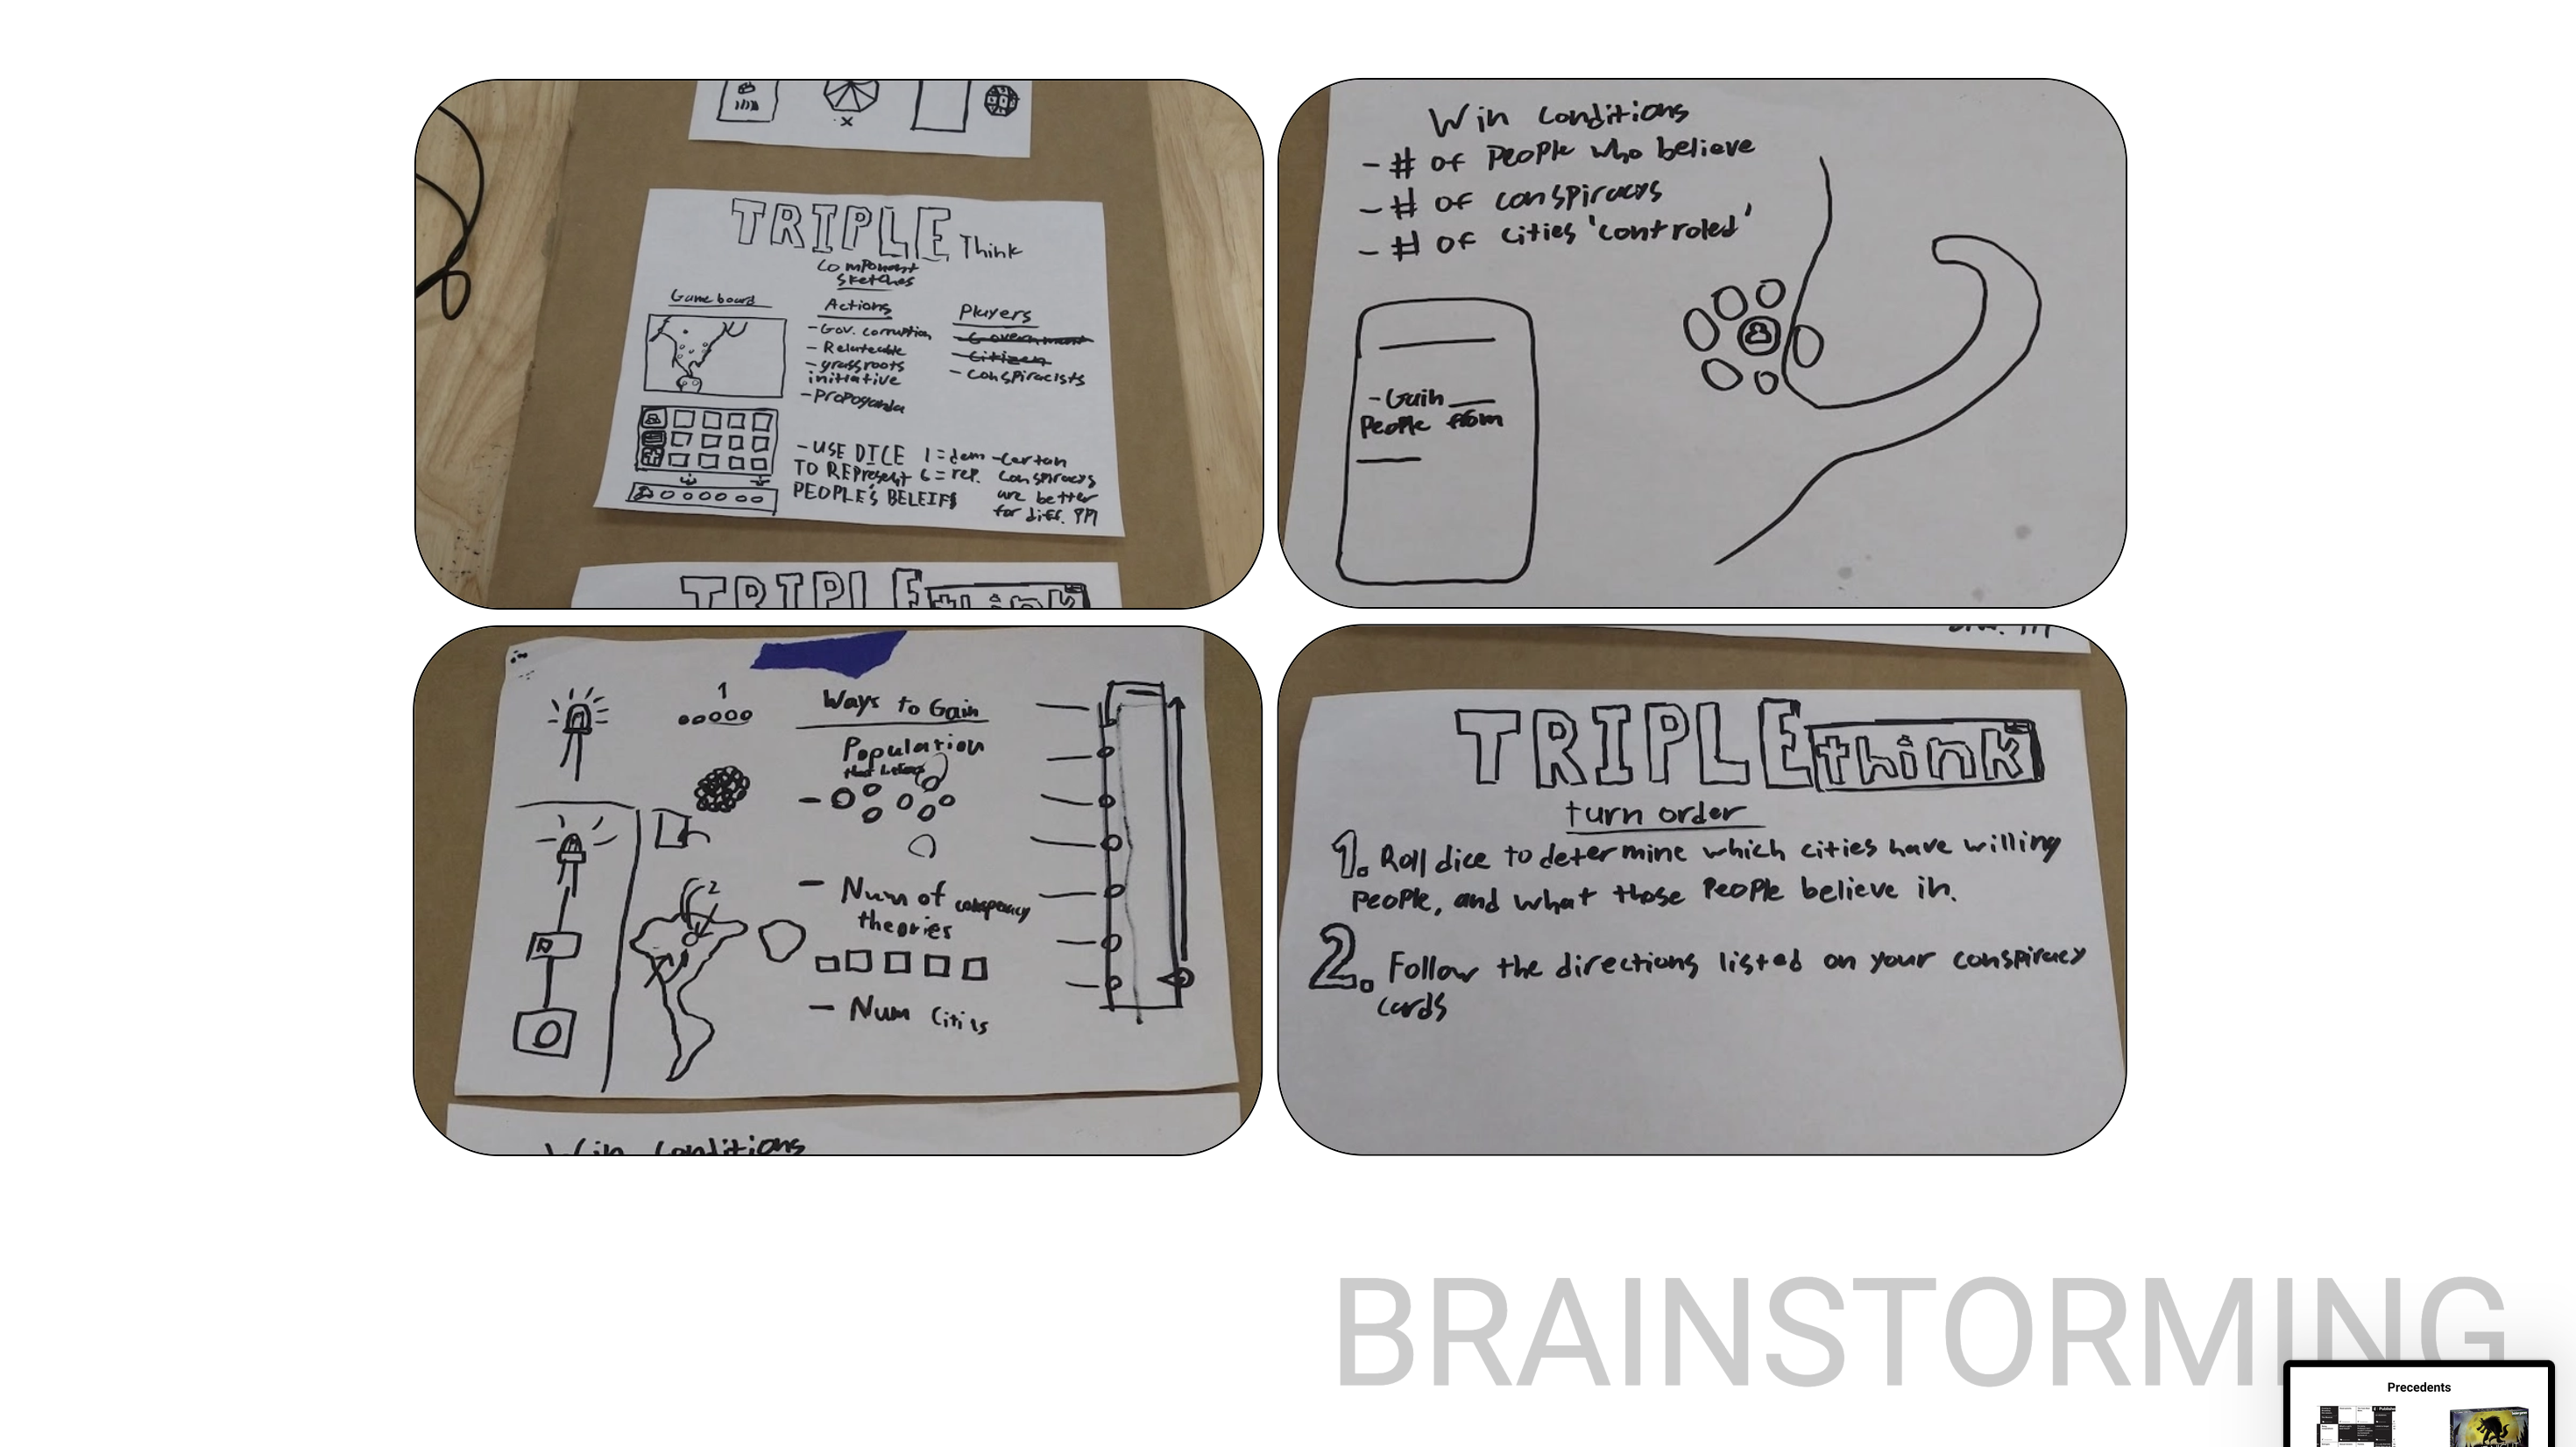 TRIPLE Think
Component
sketches
Game board
Actions
- Gov. corruption
- Relateable
- grassroots
initiative
- Propoganda
Players
- Government
- Citizen
- conspiracists
- USE DICE
TO REPresent
PEOPLE'S BELEIFS
1 = dem
6 = rep.
- Certan
conspiracys
are better
for diff. PPl
TRIPLE think
Win conditions
- # of People who believe
- # of conspiracys
- # of cities 'controled'
- Gain ___
People from
___
1
Ways to Gain
Population
that believe
- Num of conspiracy
theories
- Num Cities
2
Win Conditions
diff. PPl
TRIPLE think
turn order
1. Roll dice to determine which cities have willing
People, and what those People believe in.
2. Follow the directions listed on your conspiracy
cards
BRAINSTORMING
Precedents